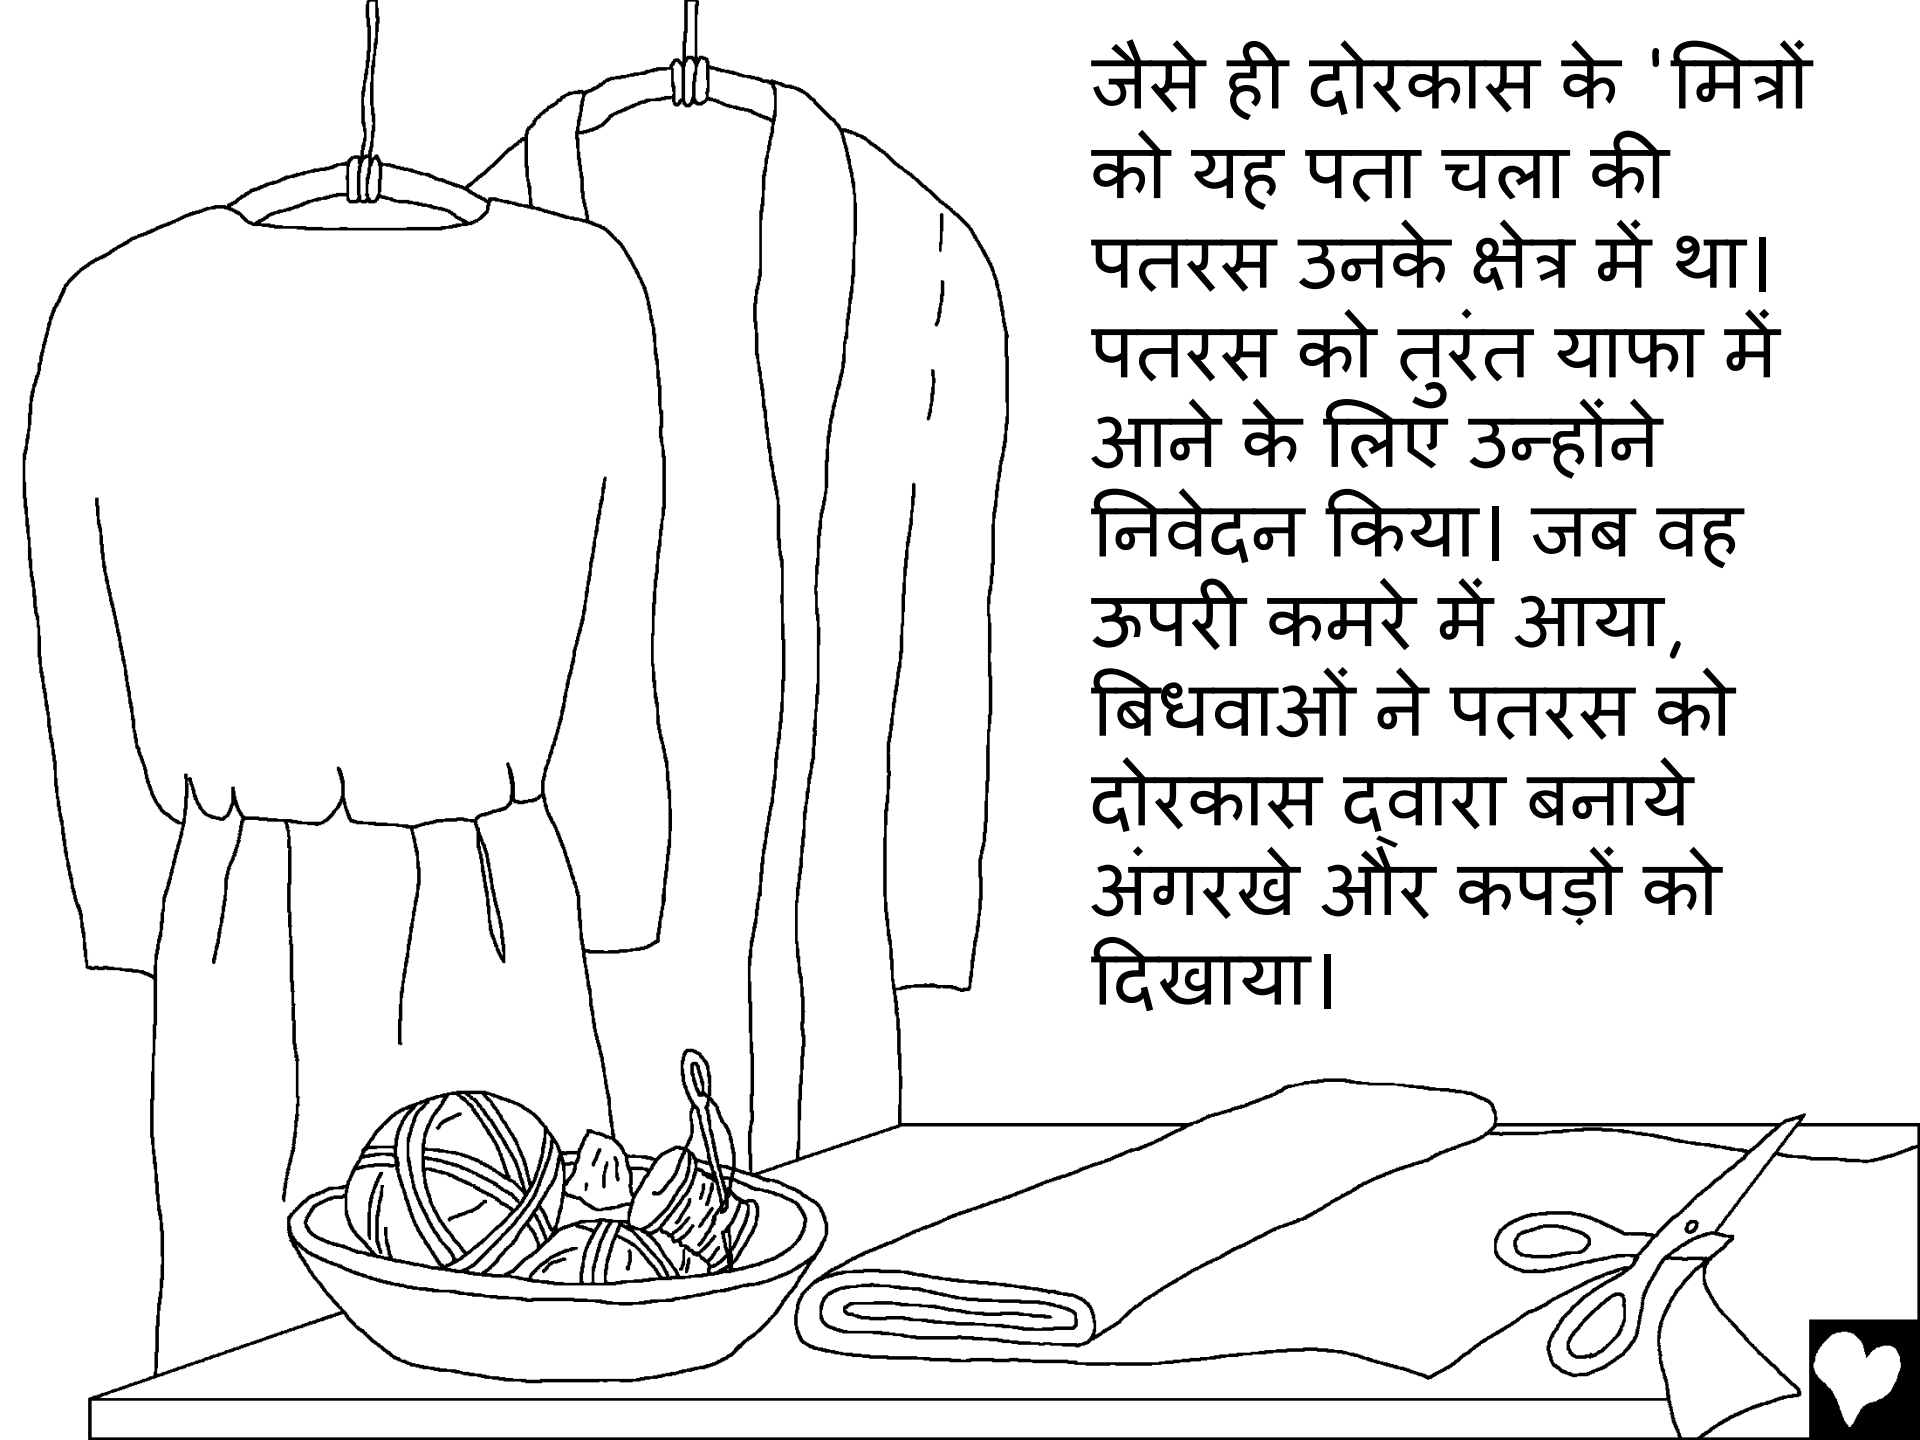 जैसे ही दोरकास के 'मित्रों
को यह पता चला की
पतरस उनके क्षेत्र में था।
पतरस को तुरंत याफा में
आने के लिए उन्होंने
निवेदन किया। जब वह
ऊपरी कमरे में आया,
बिधवाओं ने पतरस को
दोरकास द्वारा बनाये
अंगरखे और कपड़ों को
दिखाया।